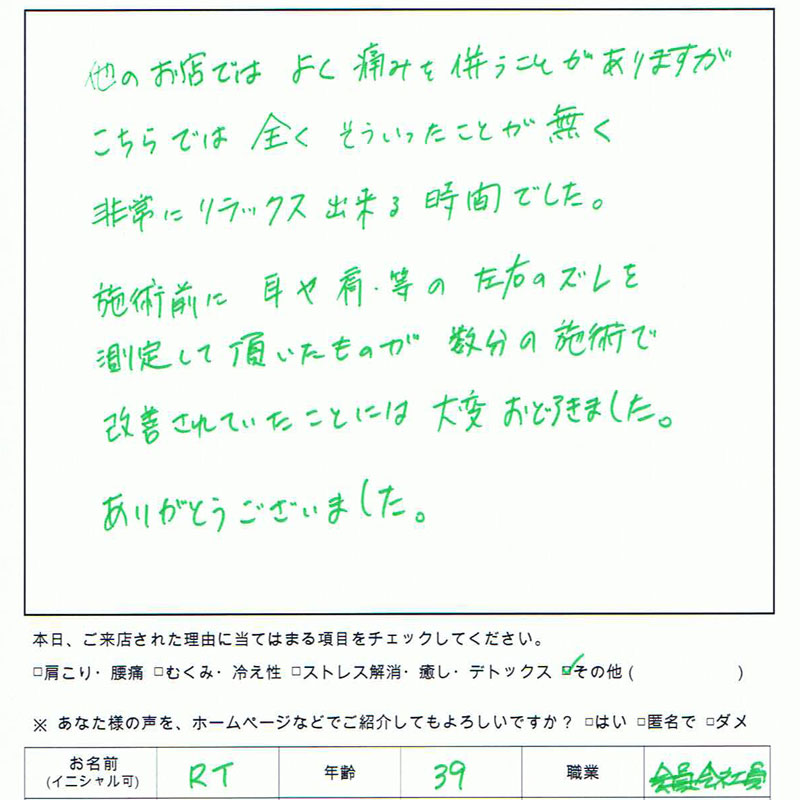 他のお店では よく 痛みを 併うことがありますが
こちらでは 全く そういったことが 無く
非常に リラックス 出来る 時間でした。
施術前に 耳や 肩・等の 左右のズレを
測定して頂いたものが 数分の施術で
改善されていたことには 大変 おどろきました。
ありがとうございました。
本日、ご来店された理由に当てはまる項目をチェックしてください。
□肩こり・腰痛 □むくみ・冷え性 □ストレス解消・癒し・デトックス ☑その他 ( )
※ あなた様の声を、ホームページなどでご紹介してもよろしいですか？ □はい □匿名で □ダメ
お名前 (イニシャル可) RT 年齢 39 職業 会社員